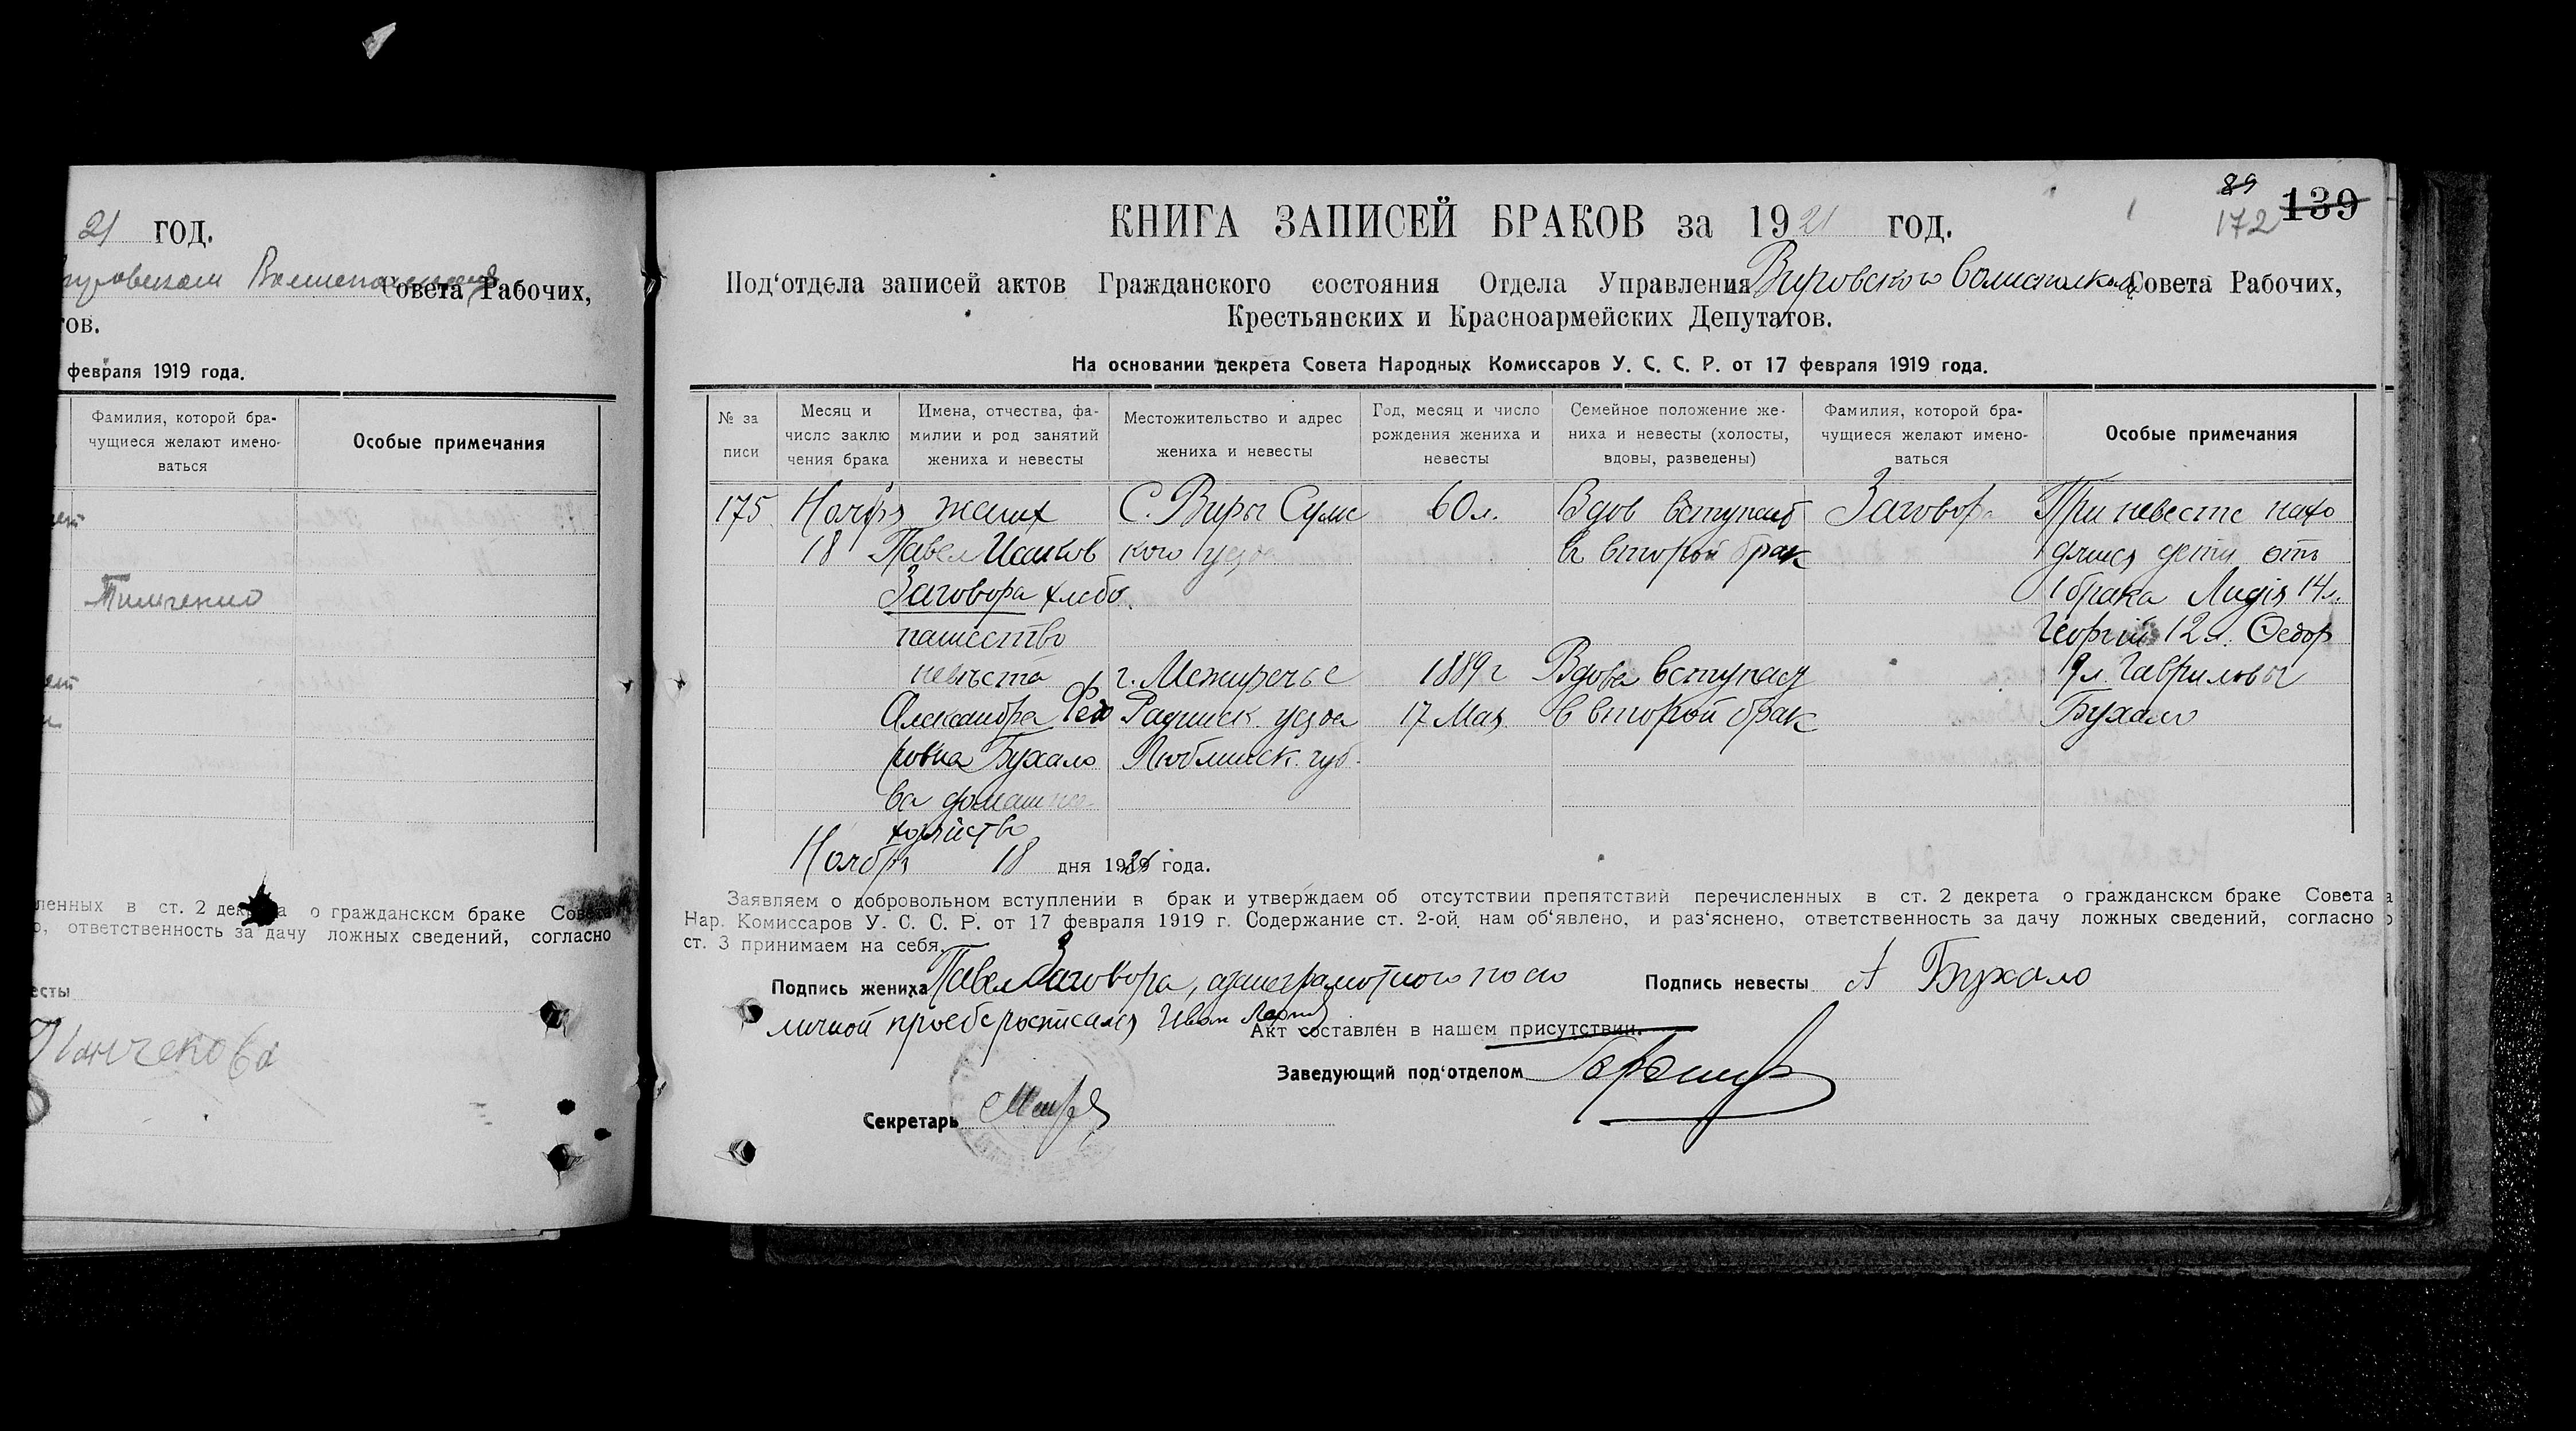 21 год.
Совета Рабочих,
тов.
февраля 1919 года.
Фамилия, которой бра-
чущиеся желают имено-
ваться
Особые примечания
ленных в ст. 2 декрета о гражданском браке Совета
ответственность за дачу ложных сведений, согласно
есты
89
139
172
КНИГА ЗАПИСЕЙ БРАКОВ за 1921 год.
Под‘отдела записей актов Гражданского состояния Отдела Управления Вировского Волисполкома Совета Рабочих,
Крестьянских и Красноармейских Депутатов.
На основании декрета Совета Народных Комиссаров У. С. С. Р. от 17 февраля 1919 года.
№ за
писи
Месяц и
число заклю
чения брака
Имена, отчества, фа-
милии и род занятий
жениха и невесты
Местожительство и адрес
жениха и невесты
Год, месяц и число
рождения жениха и
невесты
Семейное положение же-
ниха и невесты (холосты,
вдовы, разведены)
Фамилия, которой бра-
чущиеся желают имено-
ваться
Особые примечания
175
Ноября
18
жених
Павел Исаков
Заговора хлебо
пашество
невеста
Александра Федо
ровна Бухало
ва домашнее
хозяйство
С. Виры Сумс
кого уезда
г. Межиречье
Радинск. уезда
Люблинск. губ.
60 л.
1889 г
17 Мая
Вдов вступает
в второй брак
Вдова вступает
в второй брак
Заговора
При невесте нахо
дятся дети от
1 брака Лидия 14 л.
Георгий 12 л. Федор
9 л. Гавриловы
Бухало
Ноября 18 дня 1921 года.
Заявляем о добровольном вступлении в брак и утверждаем об отсутствии препятствий перечисленных в ст. 2 декрета о гражданском браке Совета
Нар. Комиссаров У. С. С. Р. от 17 февраля 1919 г. Содержание ст. 2-ой нам об‘явлено, и раз‘яснено, ответственность за дачу ложных сведений, согласно
ст. 3 принимаем на себя.
Подпись жениха Павел Заговора, а за неграмотного по его
личной просьбе росписался Иван
Подпись невесты А Бухало
Акт составлен в нашем присутствии.
Заведующий под‘отделом
Секретарь